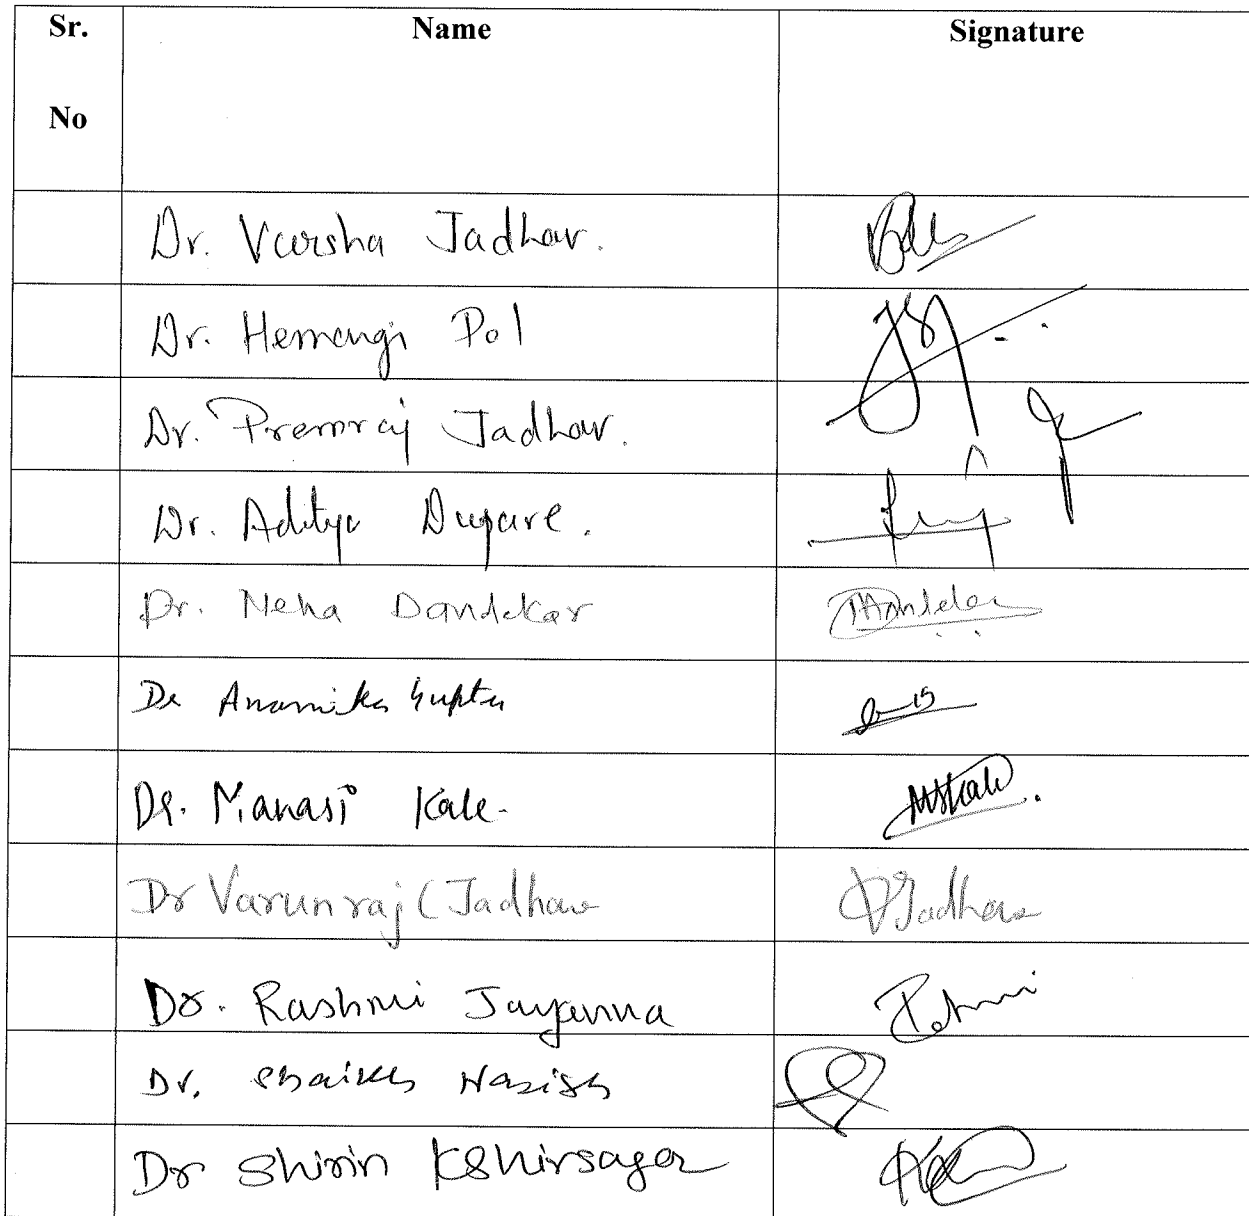 Sr. No Name Signature
Dr. Varsha Jadhav.
Dr. Hemangi Pol
Dr. Premraj Jadhav.
Dr. Aditya Dupare.
Dr. Neha Dandekar
Dr Anamika Gupta
Dr. Manasi Kale. MSKale.
Dr Varunraj (Jadhav VJadhav
Dr. Rashmi Jayanna
Dr. Shaikh Nazish
Dr Shirin Kshirsagar